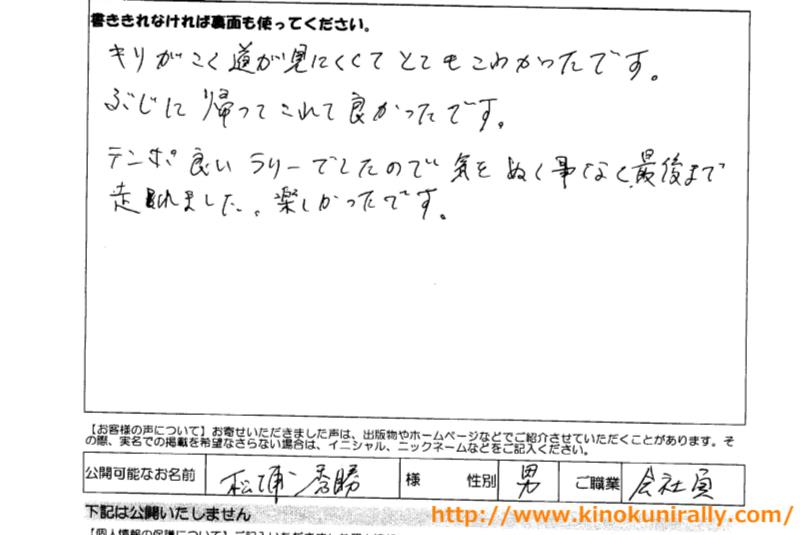 書ききれなければ裏面も使ってください。
キリがこく道が見にくくてとてもこわかったです。
ぶじに帰ってこれて良かったです。
テンポ良いラリーでしたので気をぬく事なく、最後まで
走れました。楽しかったです。
【お客様の声について】お寄せいただきました声は、出版物やホームページなどでご紹介させていただくことがあります。そ
の際、実名での掲載を希望なさらない場合は、イニシャル、ニックネームなどをご記入ください。
公開可能なお名前 松浦秀勝 様 性別 男 ご職業 会社員
下記は公開いたしません
http://www.kinokunirally.com/